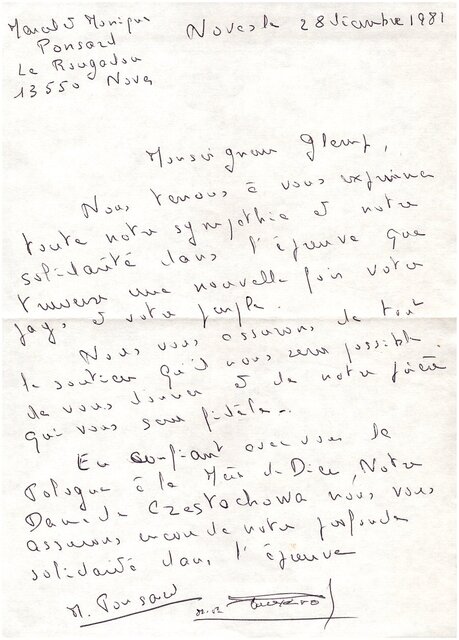 Marcel & Monique
Ponsard
Le Rougadou
13550 Noves
Noves le 28 décembre 1981
Monseigneur Glemp,
Nous tenons à vous exprimer
toute notre sympathie et notre
solidarité dans l'épreuve que
traverse une nouvelle fois votre
pays et votre peuple.
Nous vous assurons de tout
le soutien qu'il nous sera possible
de vous donner et de notre prière
qui vous sera fidèle.
En confiant avec vous la
Pologne à la Mère de Dieu, Notre
Dame de Czestochowa nous vous
assurons encore de notre profonde
solidarité dans l'épreuve
M. Ponsard